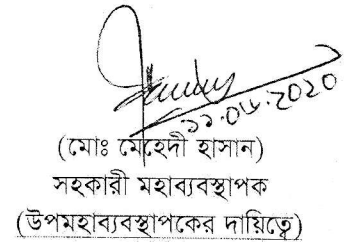 ১১.০৬.2020
(মোঃ মেহেদী হাসান)
সহকারী মহাব্যবস্থাপক
(উপমহাব্যবস্থাপকের দায়িত্বে)